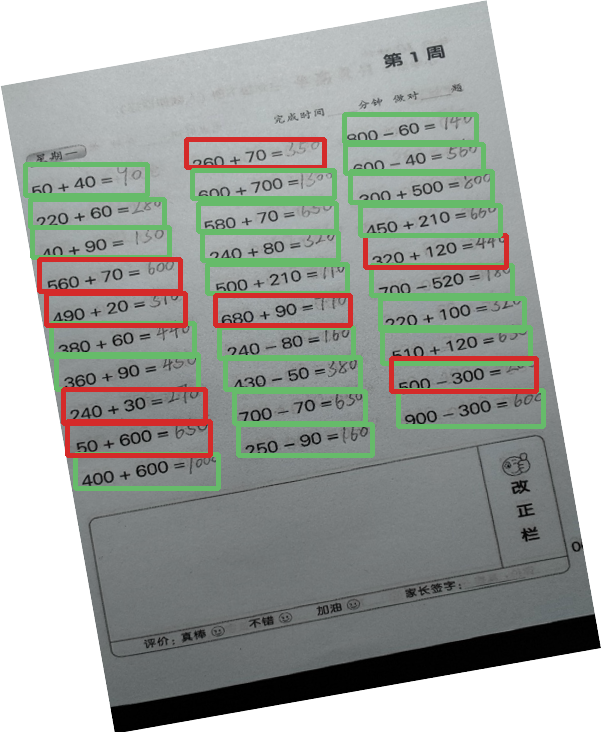 第 1 周
完成时间 分钟 做对 题
星期一
50 + 40 = 90
220 + 60 = 280
40 + 90 = 130
560 + 70 = 600
490 + 20 = 510
380 + 60 = 440
360 + 90 = 450
240 + 30 = 270
50 + 600 = 650
400 + 600 = 1000
260 + 70 = 350
600 + 700 = 1300
580 + 70 = 650
240 + 80 = 320
500 + 210 = 710
680 + 90 = 770
240 - 80 = 160
430 - 50 = 380
700 - 70 = 630
250 - 90 = 160
800 - 60 = 740
600 - 40 = 560
300 + 500 = 800
450 + 210 = 660
320 + 120 = 440
700 - 520 = 180
220 + 100 = 320
510 + 120 = 630
500 - 300 =
900 - 300 = 600
改正栏
家长签字:
评价: 真棒 不错 加油